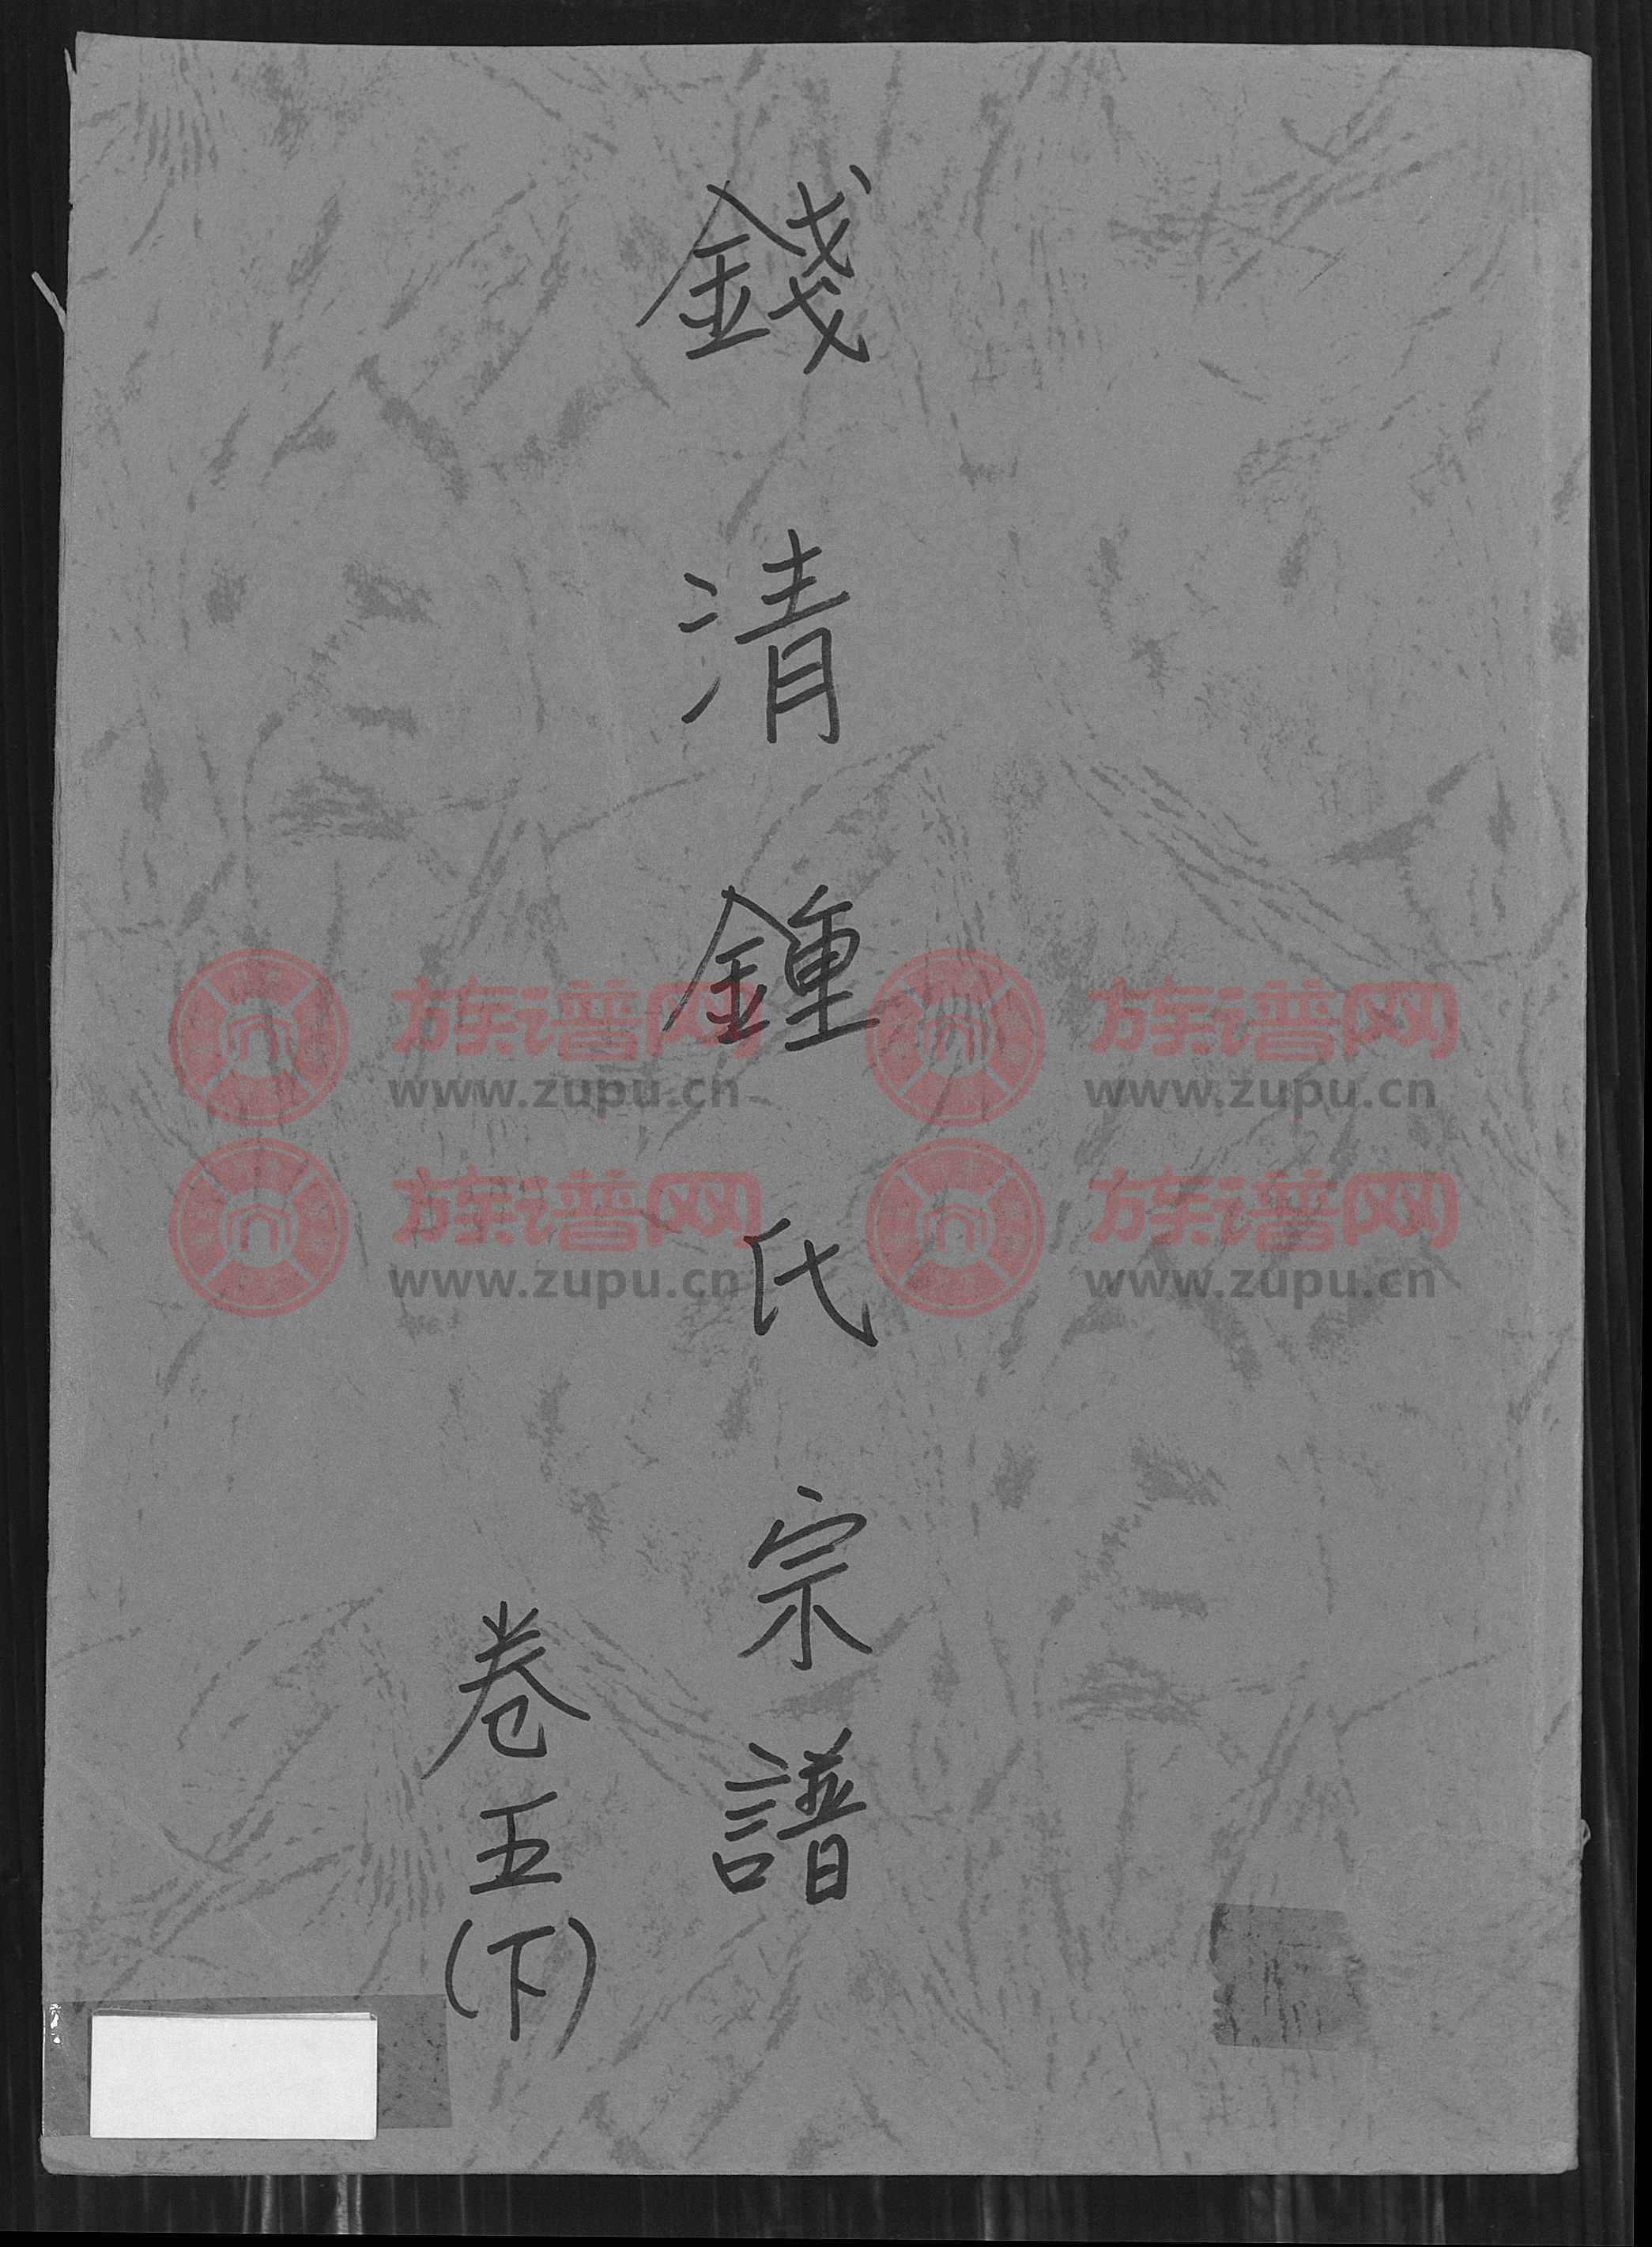 錢清鍾氏宗譜
卷五(下)
族谱网 族谱网
www.zupu.cn www.zupu.cn
族谱网 族谱网
www.zupu.cn www.zupu.cn